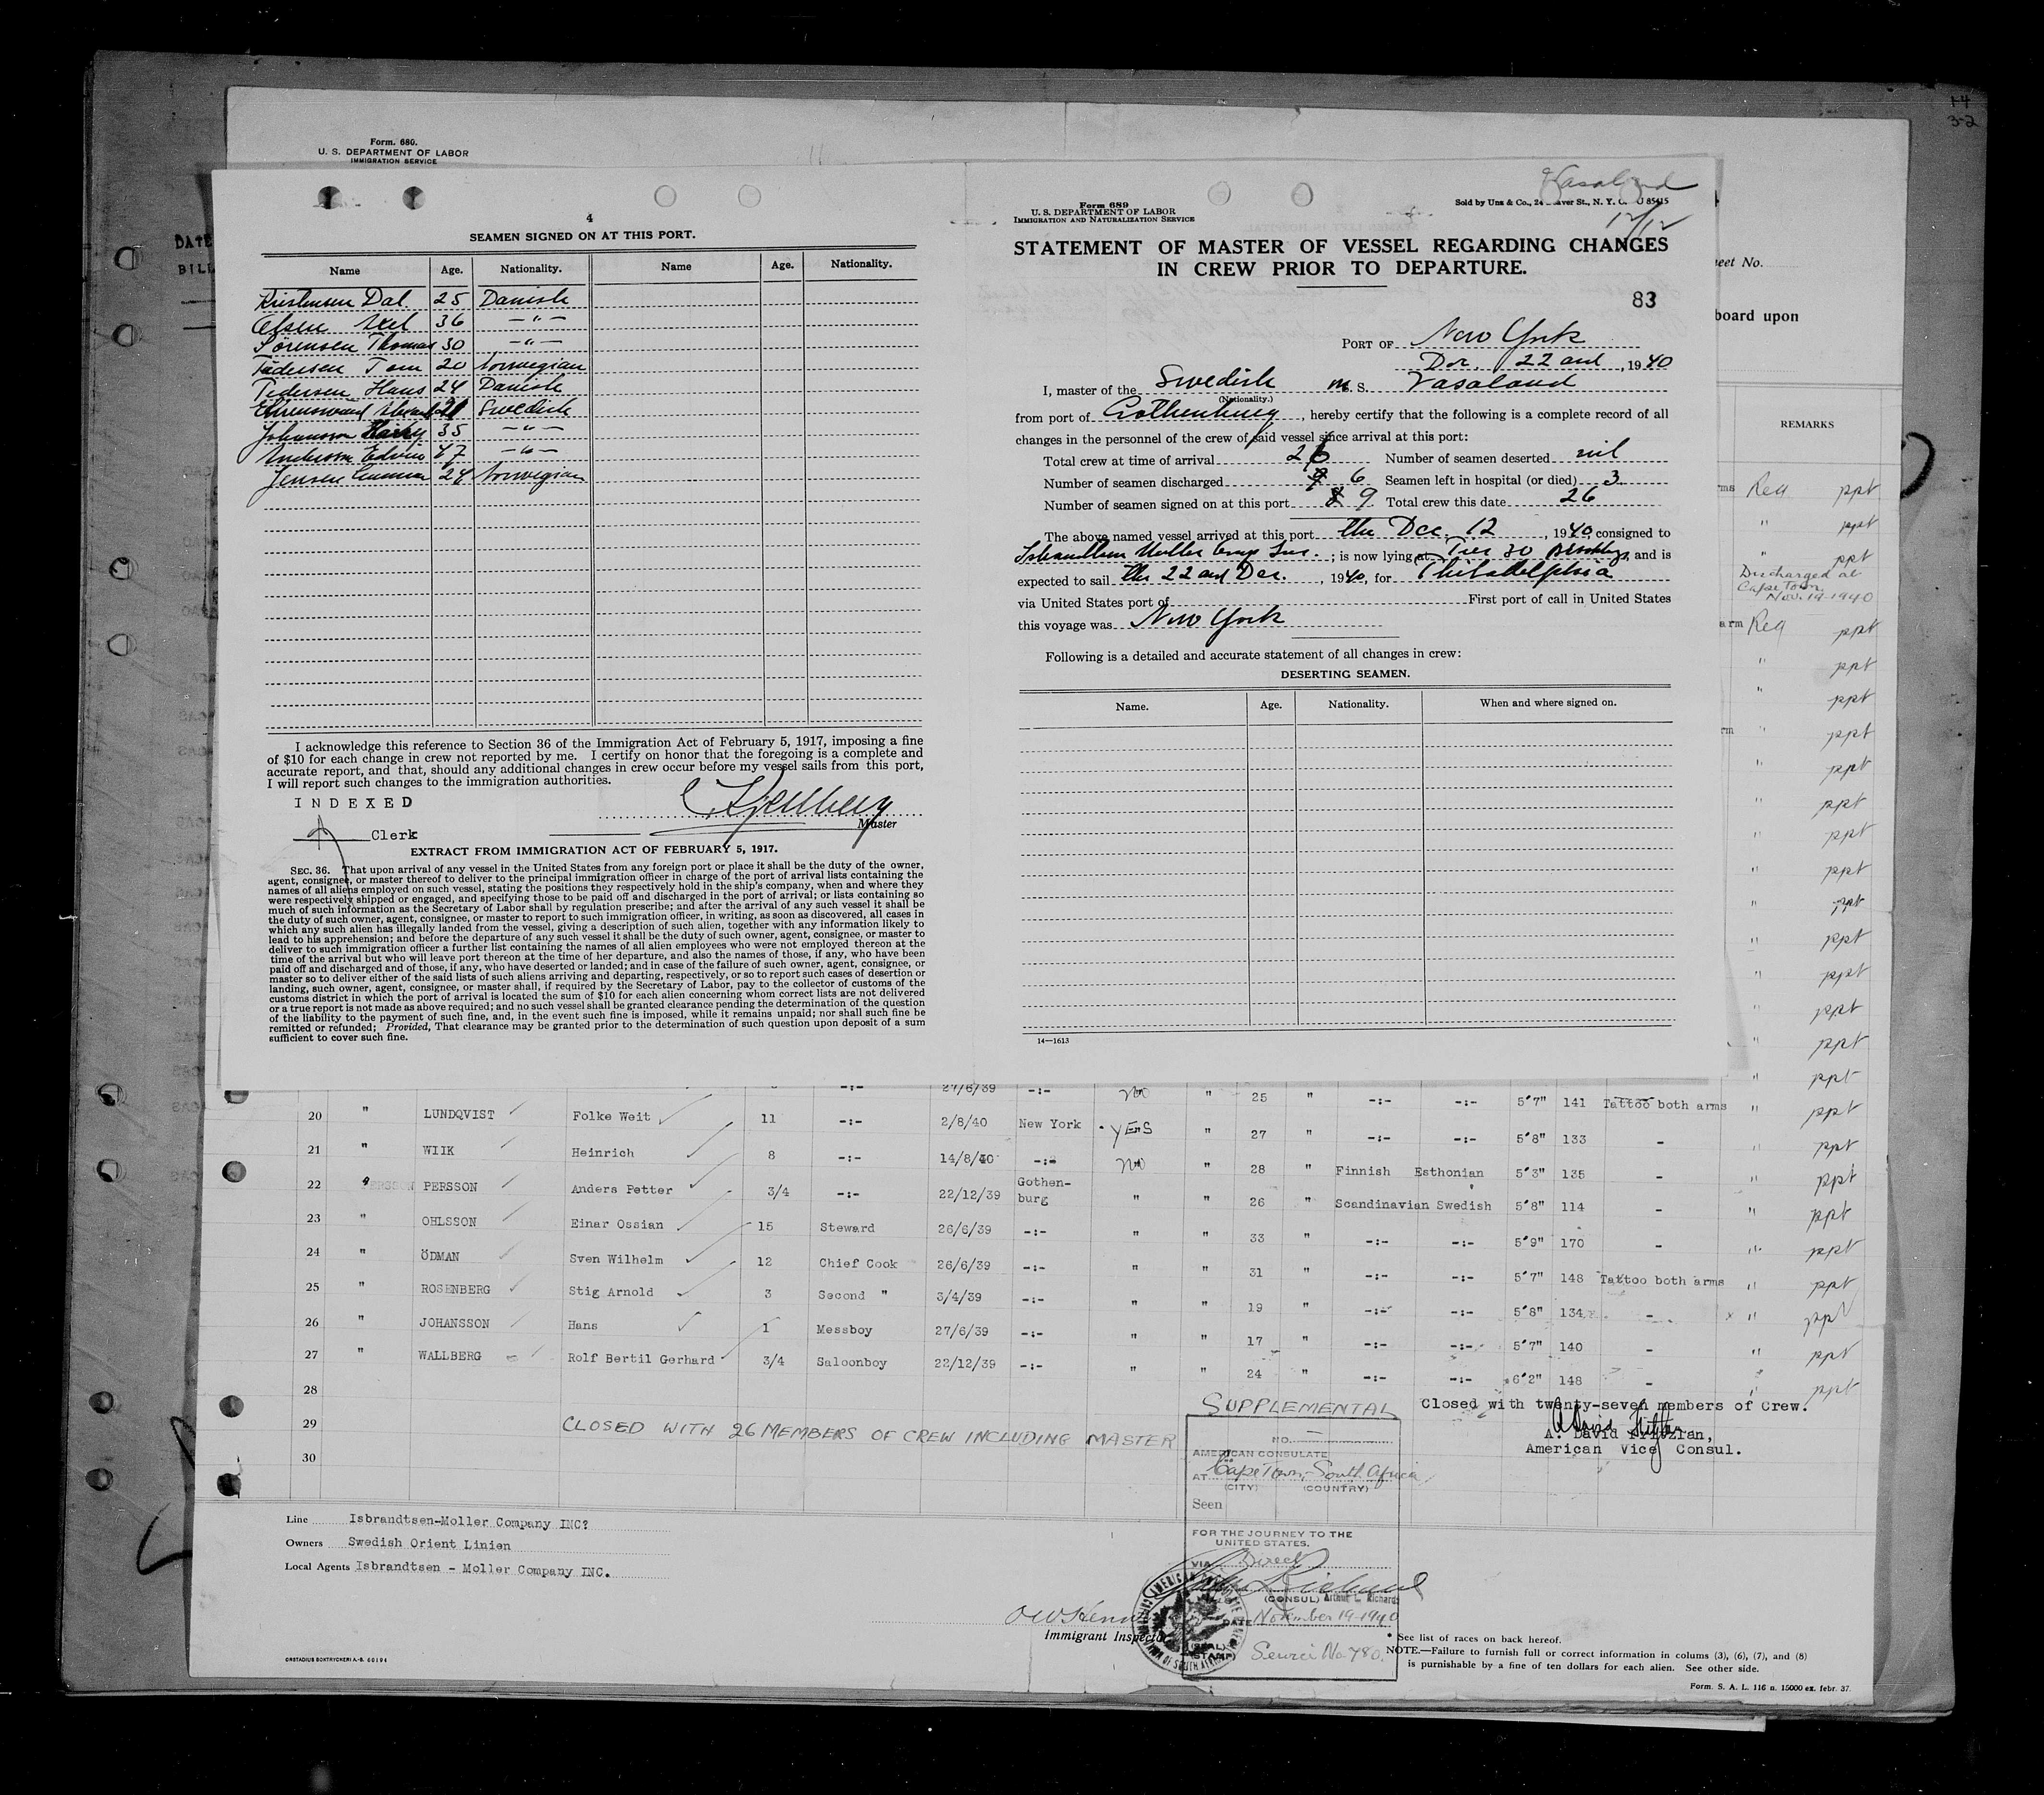 Form. 680.
U. S. DEPARTMENT OF LABOR
IMMIGRATION SERVICE
14
3-2
DATE
BILL
eet No.
board upon
4
SEAMEN SIGNED ON AT THIS PORT.
Name Age. Nationality. Name Age. Nationality.
Kristensen Dal. 25 Danish
Olsen Axel 36 -"-
Sørensen Thomas 30 -"-
Tom 20 Norwegian
Pedersen Hans 24 Danish
21 Swedish
Johansson Harry 35 -"-
Andersson Edvin 47 -"-
Jensen Gunnar 24 Norwegian
I acknowledge this reference to Section 36 of the Immigration Act of February 5, 1917, imposing a fine
of $10 for each change in crew not reported by me. I certify on honor that the foregoing is a complete and
accurate report, and that, should any additional changes in crew occur before my vessel sails from this port,
I will report such changes to the immigration authorities.
INDEXED
Clerk
Master
EXTRACT FROM IMMIGRATION ACT OF FEBRUARY 5, 1917.
SEC. 36. That upon arrival of any vessel in the United States from any foreign port or place it shall be the duty of the owner,
agent, consignee, or master thereof to deliver to the principal immigration officer in charge of the port of arrival lists containing the
names of all aliens employed on such vessel, stating the positions they respectively hold in the ship's company, when and where they
were respectively shipped or engaged, and specifying those to be paid off and discharged in the port of arrival; or lists containing so
much of such information as the Secretary of Labor shall by regulation prescribe; and after the arrival of any such vessel it shall be
the duty of such owner, agent, consignee, or master to report to such immigration officer, in writing, as soon as discovered, all cases in
which any such alien has illegally landed from the vessel, giving a description of such alien, together with any information likely to
lead to his apprehension; and before the departure of any such vessel it shall be the duty of such owner, agent, consignee, or master to
deliver to such immigration officer a further list containing the names of all alien employees who were not employed thereon at the
time of the arrival but who will leave port thereon at the time of her departure, and also the names of those, if any, who have been
paid off and discharged and of those, if any, who have deserted or landed; and in case of the failure of such owner, agent, consignee, or
master so to deliver either of the said lists of such aliens arriving and departing, respectively, or so to report such cases of desertion or
landing, such owner, agent, consignee, or master shall, if required by the Secretary of Labor, pay to the collector of customs of the
customs district in which the port of arrival is located the sum of $10 for each alien concerning whom correct lists are not delivered
or a true report is not made as above required; and no such vessel shall be granted clearance pending the determination of the question
of the liability to the payment of such fine, and, in the event such fine is imposed, while it remains unpaid; nor shall such fine be
remitted or refunded; Provided, That clearance may be granted prior to the determination of such question upon deposit of a sum
sufficient to cover such fine.
Vasaland
12/12
Form 689
U. S. DEPARTMENT OF LABOR
IMMIGRATION AND NATURALIZATION SERVICE
Sold by Unz & Co., 24 Beaver St., N. Y. C. U 85415
STATEMENT OF MASTER OF VESSEL REGARDING CHANGES
IN CREW PRIOR TO DEPARTURE.
83
PORT OF New York
Dec. 22 and, 1940
I, master of the Swedish M. S. Vasaland
(Nationality.)
from port of Gothenburg, hereby certify that the following is a complete record of all
changes in the personnel of the crew of said vessel since arrival at this port:
Total crew at time of arrival 26 Number of seamen deserted nil
Number of seamen discharged 6 Seamen left in hospital (or died) 3
Number of seamen signed on at this port 9 Total crew this date 26
The above named vessel arrived at this port the Dec. 12, 1940, consigned to
Isbrandtsen Moller Comp Inc.; is now lying at Pier 30 Brooklyn, and is
expected to sail the 22 and Dec., 1940, for Philadelphia
via United States port of First port of call in United States
this voyage was New York
Following is a detailed and accurate statement of all changes in crew:
DESERTING SEAMEN.
Name. Age. Nationality. When and where signed on.
14—1613
REMARKS
ms Reg ppt
" ppt
" ppt
Discharged at
Cape Town
Nov. 19-1940
arm Reg ppt
" ppt
" ppt
rm " ppt
" ppt
" ppt
" ppt
" ppt
" ppt
" ppt
" ppt
" ppt
" ppt
" ppt
27/6/39 -:- no " 25 " -:- -:- 5'7" 141 Tattoo both arms " ppt
20 " LUNDQVIST Folke Weit 11 -:- 2/8/40 New York YES " 27 " -:- -:- 5'8" 133 - " ppt
21 " WIIK Heinrich 8 -:- 14/8/40 -:- no " 28 " Finnish Esthonian 5'3" 135 - " ppt
22 " PERSSON Anders Petter 3/4 -:- 22/12/39 Gothen-
burg " " 26 " Scandinavian Swedish 5'8" 114 - " ppt
23 " OHLSSON Einar Ossian 15 Steward 26/6/39 -:- " " 33 " -:- -:- 5'9" 170 - " ppt
24 " ÖDMAN Sven Wilhelm 12 Chief Cook 26/6/39 -:- " " 31 " -:- -:- 5'7" 148 Tattoo both arms " ppt
25 " ROSENBERG Stig Arnold 3 Second " 3/4/39 -:- " " 19 " -:- -:- 5'8" 134 - x " ppt
26 " JOHANSSON Hans 1 Messboy 27/6/39 -:- " " 17 " -:- -:- 5'7" 140 - " ppt
27 " WALLBERG Rolf Bertil Gerhard 3/4 Saloonboy 22/12/39 -:- " " 24 " -:- -:- 6'2" 148 - " ppt
28
29 CLOSED WITH 26 MEMBERS OF CREW INCLUDING MASTER
30
SUPPLEMENTAL
Closed with twenty-seven members of Crew.
A. David Fritzlan,
American Vice Consul.
NO. —
AMERICAN CONSULATE
AT Cape Town, South Africa
(CITY) (COUNTRY)
Seen
FOR THE JOURNEY TO THE
UNITED STATES.
VIA Direct
(CONSUL) Arthur L. Richards
DATE November 19-1940
(SEAL)
(STAMP) Service No. 780.
Line Isbrandtsen-Moller Company INC?
Owners Swedish Orient Linien
Local Agents Isbrandtsen - Moller Company INC.
Immigrant Inspector
* See list of races on back hereof.
NOTE.—Failure to furnish full or correct information in colums (3), (6), (7), and (8)
is punishable by a fine of ten dollars for each alien. See other side.
ORSTADIUS BOKTRYCKERI A.-B. 60194
Form. S. A. L. 116 n. 15000 ex. febr. 37.